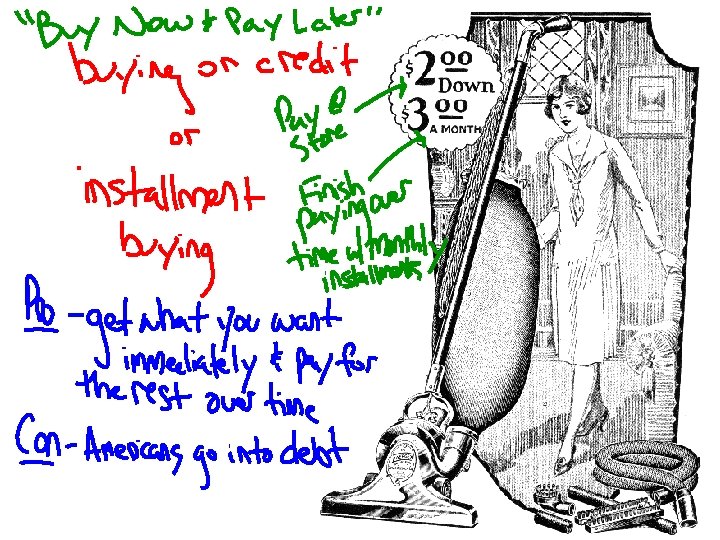 "Buy Now & Pay Later"
buying or credit
or
installment
buying
$2.00
Down
$3.00
A MONTH
Pay @
Store
Finish
paying over
time w/ monthly
installments
Pro - get what you want
immediately & pay for
the rest over time
Con - Americans go into debt